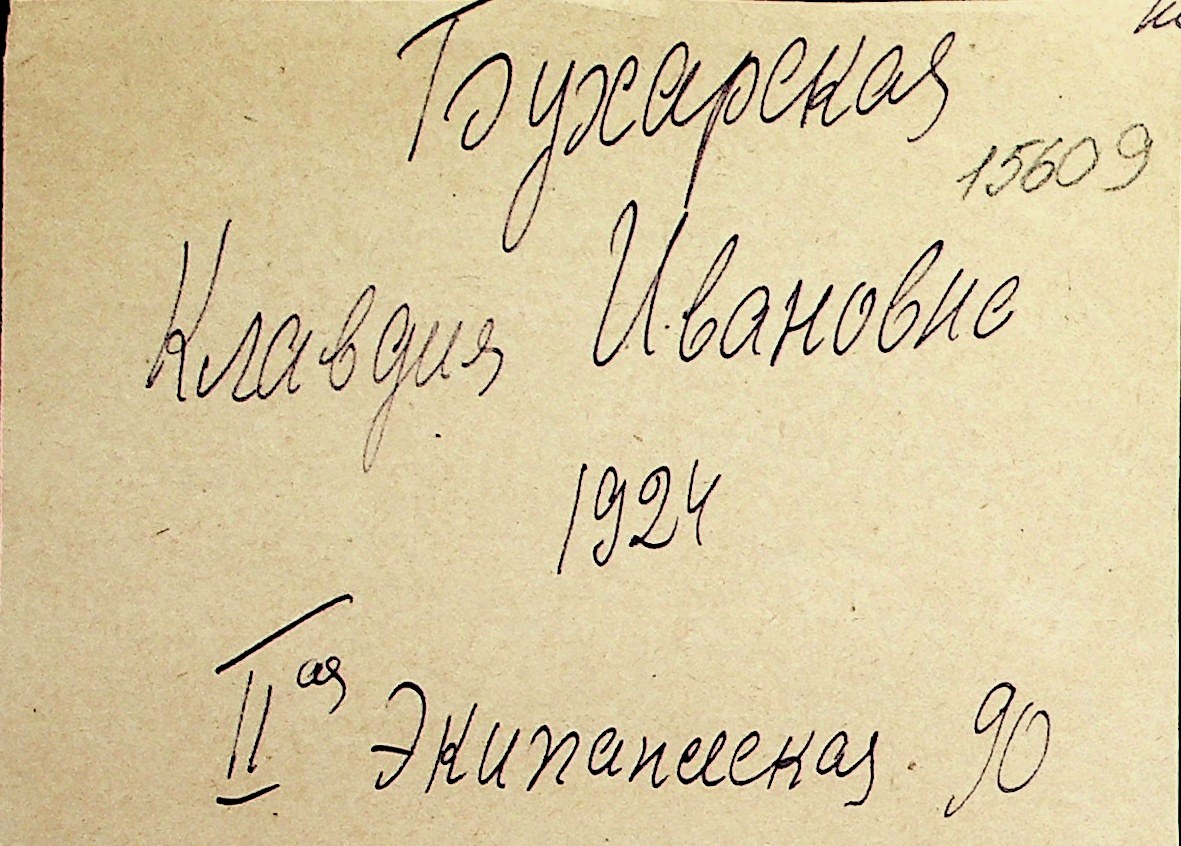 Бухарская
15609
Клавдия Ивановна
1924
IIая Экипажская 90